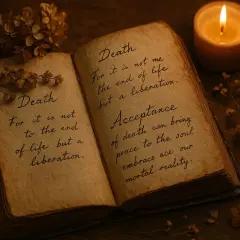 Death
For it is not
to the end
of life but a
liberation.
Death
For it is not me
the end of life
but a liberation.
Acceptance
of death can bring
peace to the soul
embrace ace our
mortal reality.